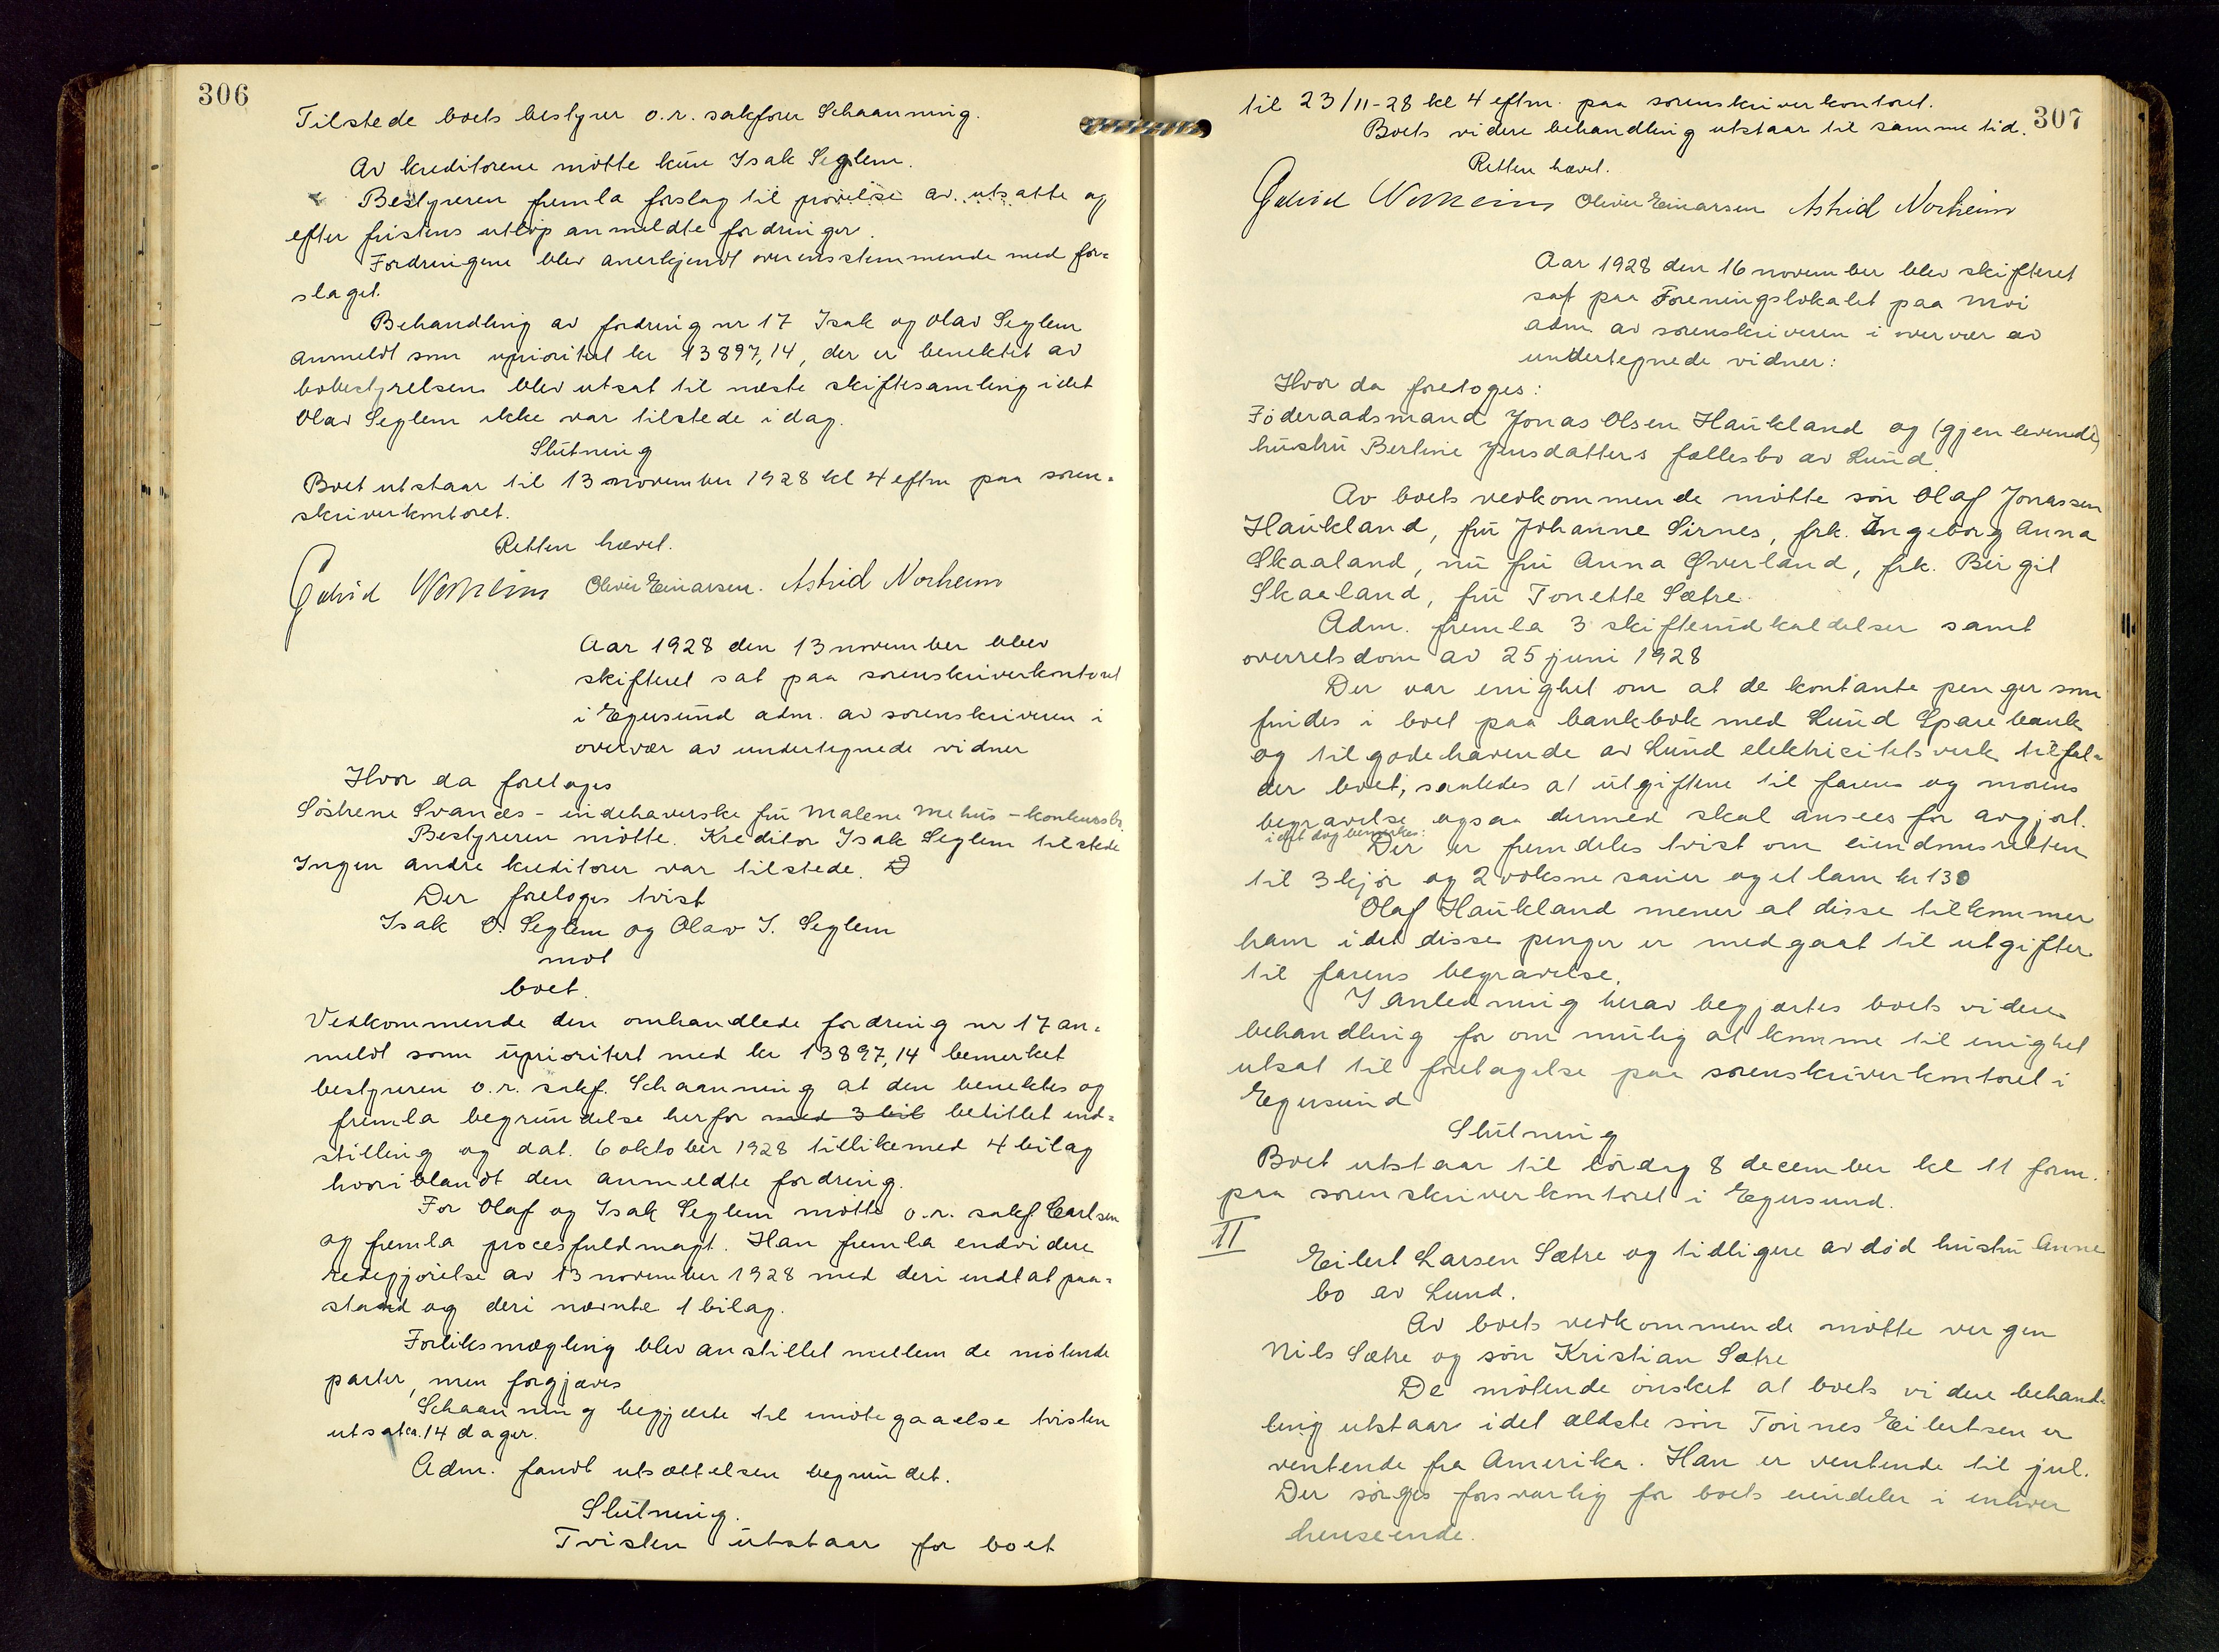 306
Tilstede boets bestyrer o.r. sakfører Schaanning.
Av kreditorene møtte kun Isak Seglem.
Bestyreren fremla forslag til prøvelse av utsatte og
efter fristens utløp anmeldte fordringer.
Fordringene blev anerkjendt overensstemmende med for-
slaget.
Behandling av fordring nr 17 Isak og Olav Seglem
anmeldt som uprioritet kr 13897,14, der er benektet av
bobestyrelsen blev utsat til næste skiftesamling idet
Olav Seglem ikke var tilstede idag.
Slutning
Boet utstaar til 13 november 1928 kl 4 eftm paa soren-
skriverkontoret.
Retten hævet.
Oliver Einarsen. Astrid Norheim
Aar 1928 den 13 november blev
skifteret sat paa sorenskriverkontoret
i Egersund adm. av sorenskriveren i
overvær av undertegnede vidner
Hvor da foretoges
Søstrene Svanes - indehaverske fru Malene Mehus - konkursbo.
Bestyreren møtte. Kreditor Isak Seglem tilstede
Ingen andre kreditorer var tilstede.
Der foretoges tvist
Isak O. Seglem og Olav I. Seglem
mot
boet.
Vedkommende den omhandlede fordring nr 17 an-
meldt som uprioritert med kr 13897,14 bemerket
bestyreren o.r. sakf. Schaanning at den benektes og
fremla begrundelse herfor med 3 bil betitlet ind-
stilling og dat. 6 oktober 1928 tillikemed 4 bilag
hvoriblandt den anmeldte fordring.
For Olaf og Isak Seglem møtte o.r. sakf. Carlsen
og fremla procesfuldmagt. Han fremla endvidere
redegjørelse av 13 november 1928 med deri indtat paa-
stand og deri nævnte 1 bilag.
Forliksmægling blev anstillet mellem de møtende
parter, men forgjæves
Schaanning begjærte til imøtegaaelse tvisten
utsat ca. 14 dager.
Adm. fandt utsættelsen begrundet.
Slutning.
Tvisten utstaar for boet
307
til 23/11-28 kl 4 eftm. paa sorenskriverkontoret.
Boets videre behandling utstaar til samme tid.
Retten hævet.
Oliver Einarsen Astrid Norheim
Aar 1928 den 16 november blev skifteret
sat paa Foreningslokalet paa Moi
adm. av sorenskriveren i overvær av
undertegnede vidner:
Hvor da foretoges:
Føderaadsmand Jonas Olsen Haukland og (gjenlevende)
hustru Bertine Jensdatters fællesbo av Lund.
Av boets vedkommende møtte søn Olaf Jonassen
Haukland, fru Johanne Sirnes, frk. Ingeborg Anna
Skaaland, nu fru Anna Øverland, frk. Birgit
Skaaland, fru Tonette Sætre.
Adm. fremla 3 skifteindkaldelser samt
overretsdom av 25 juni 1928
Der var enighet om at de kontante penger som
findes i boet paa bankbok med Lund Sparebank
og tilgodehavende av Lund elektricitetsverk tilfal-
der boet, saaledes at utgiftene til farens og morens
begravelse ogsaa dermed skal ansees for avgjort.
idet dog bemerkes:
Der er fremdeles tvist om eiendomsretten
til 3 kjør og 2 voksne sauer og et lam kr 130
Olaf Haukland mener at disse tilkommer
ham idet disse penger er medgaat til utgifter
til farens begravelse.
I anledning herav begjærtes boets videre
behandling for om mulig at komme til enighet
utsat til foretagelse paa sorenskriverkontoret i
Egersund
Slutning
Boet utstaar til lørdag 8 december kl 11 form.
paa sorenskriverkontoret i Egersund.
II
Eilert Larsen Sætre og tidligere avdød hustru Anne
bo av Lund.
Av boets vedkommende møtte vergen
Nils Sætre og søn Kristian Sætre
De møtende ønsket at boets videre behand-
ling utstaar idet ældste søn Tønnes Eilertsen er
ventende fra Amerika. Han er ventende til jul.
Der sørges forsvarlig for boets eiendeler i enhver
henseende.